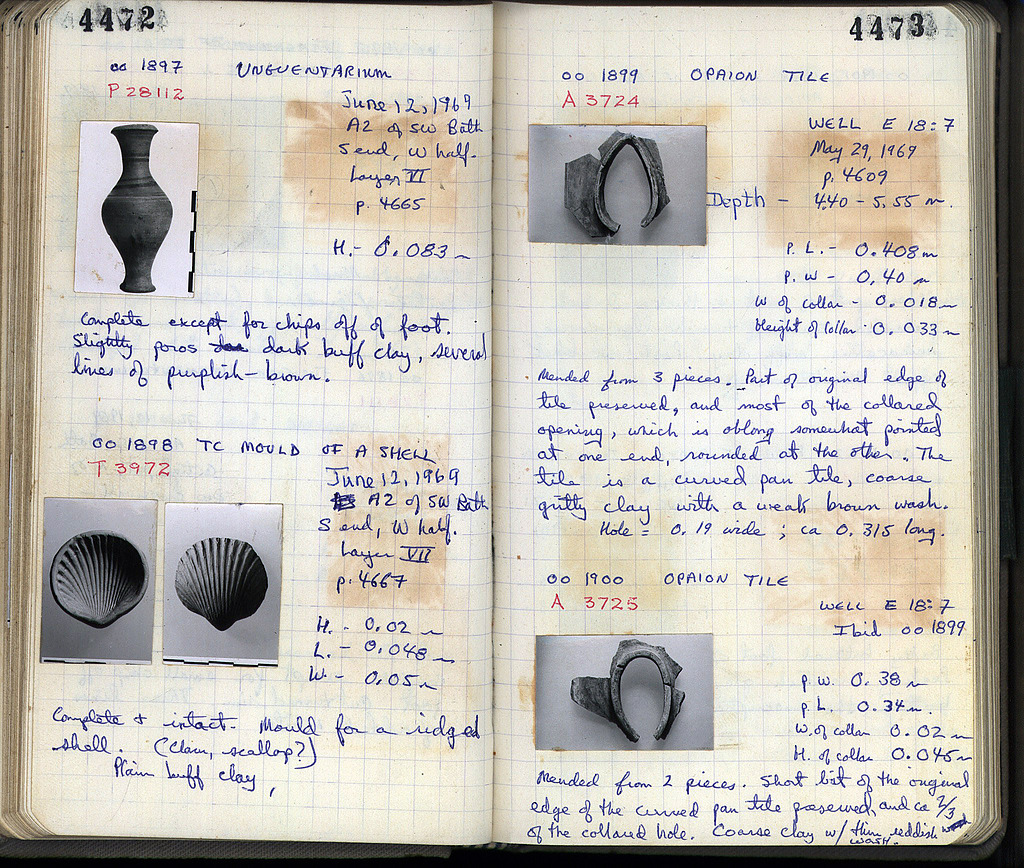 4472
OO 1897 UNGUENTARIUM
P 28112
June 12, 1969
A2 of SW Bath
S end, W half.
Layer VI
p. 4665
H. - 0.083 m
Complete except for chips off of foot.
Slightly poros dark buff clay, several
lines of purplish-brown.
OO 1898 TC MOULD OF A SHELL
T 3972
June 12, 1969
A2 of SW Bath
S end, W half.
Layer VII
p. 4667
H. - 0.02 m
L. - 0.048 m
W - 0.05 m
Complete & intact. Mould for a ridged
shell. (Clam, scallop?)
Plain buff clay,
4473
OO 1899 OPAION TILE
A 3724
WELL E 18:7
May 29, 1969
p. 4609
Depth - 4.40 - 5.55 m.
p. L. - 0.408 m
p. w - 0.40 m
W of collar - 0.018 m
Height of collar - 0.033 m
Mended from 3 pieces. Part of original edge of
tile preserved, and most of the collared
opening, which is oblong somewhat pointed
at one end, rounded at the other. The
tile is a curved pan tile, coarse
gritty clay with a weak brown wash.
Hole = 0.19 wide ; ca 0.315 long.
OO 1900 OPAION TILE
A 3725
WELL E 18:7
Ibid OO 1899
p. w. 0.38 m
p. L. 0.34 m.
W. of collar 0.02 m
H. of collar 0.045 m
Mended from 2 pieces. Short bit of the original
edge of the curved pan tile preserved, and ca 2/3
of the collared hole. Coarse clay w/ thin, reddish
wash.